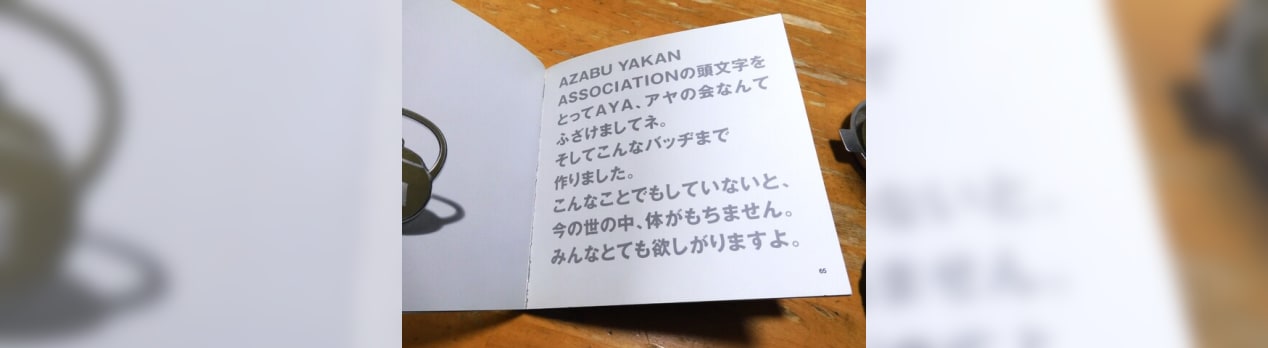 AZABU YAKAN
ASSOCIATIONの頭文字を
とってAYA、アヤの会なんて
ふざけましてネ。
そしてこんなバッヂまで
作りました。
こんなことでもしていないと、
今の世の中、体がもちません。
みんなとても欲しがりますよ。
65